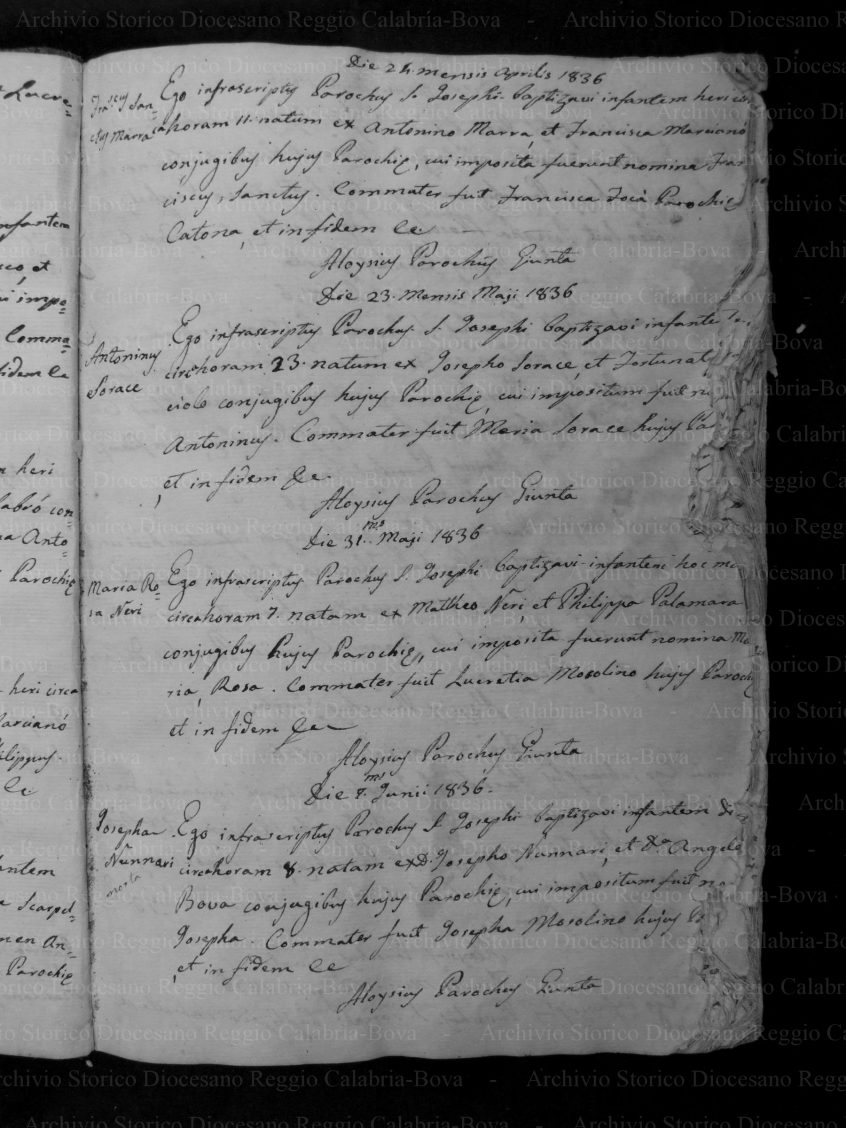 Die 24. mensis Aprilis 1836
Fra.cus San=
ctus Marra
Ego infrascriptus Parochus S. Josephi baptizavi infantem heri cir=
ca horam 11. natum ex Antonino Marra, et Francisca Marcianò
conjugibus hujus Parochię, cui imposita fuerunt nomina Fran
ciscus, Sanctus. Commater fuit Francisca Focà Parochię
Catona, et in fidem &c
Aloysius Parochus Giunta
Die 23. Mensis Maji 1836
Antoninus
Sorace
Ego infrascriptus Parochus S. Josephi baptizavi infante
circa horam 23. natum ex Josepho Sorace, et Fortunat
ciolo conjugibus hujus Parochię, cui impositum fuit n
Antoninus. Commater fuit Maria Sorace hujus Pa
, et in fidem &c.
Aloysius Parochus Giunta
Die 31. ms Maji 1836
Maria Ro=
sa Neri
Ego infrascriptus Parochus S. Josephi baptizavi infantem hoc m
circa horam 7. natam ex Mattheo Neri, et Philippa Palamara
conjugibus hujus Parochię, cui imposita fuerunt nomina Ma
ria, Rosa. Commater fuit Lucretia Mosolino hujus Paroch
et in fidem &c
Aloysius Parochus Giunta
Die 7. ms Junii 1836.
Josepha
Nunnari
morta
Ego infrascriptus Parochus S. Josephi baptizavi infantem di
circa horam 8. natam ex D. Josepho Nunnari, et Da. Angela
Bova conjugibus hujus Parochię, cui impositum fuit no
Josepha. Commater fuit Josepha Mosolino hujus
, et in fidem &c
Aloysius Parochus Giunta
nfantem
co, et
i impo=
Comma=
fidem &c
heri
labrò con=
a Anto=
Parochię
heri circa
Marcianò
hilippus.
&c
antem
Scarpel=
men An=
Parochię
Archivio Storico Diocesano Reggio Calabria-Bova